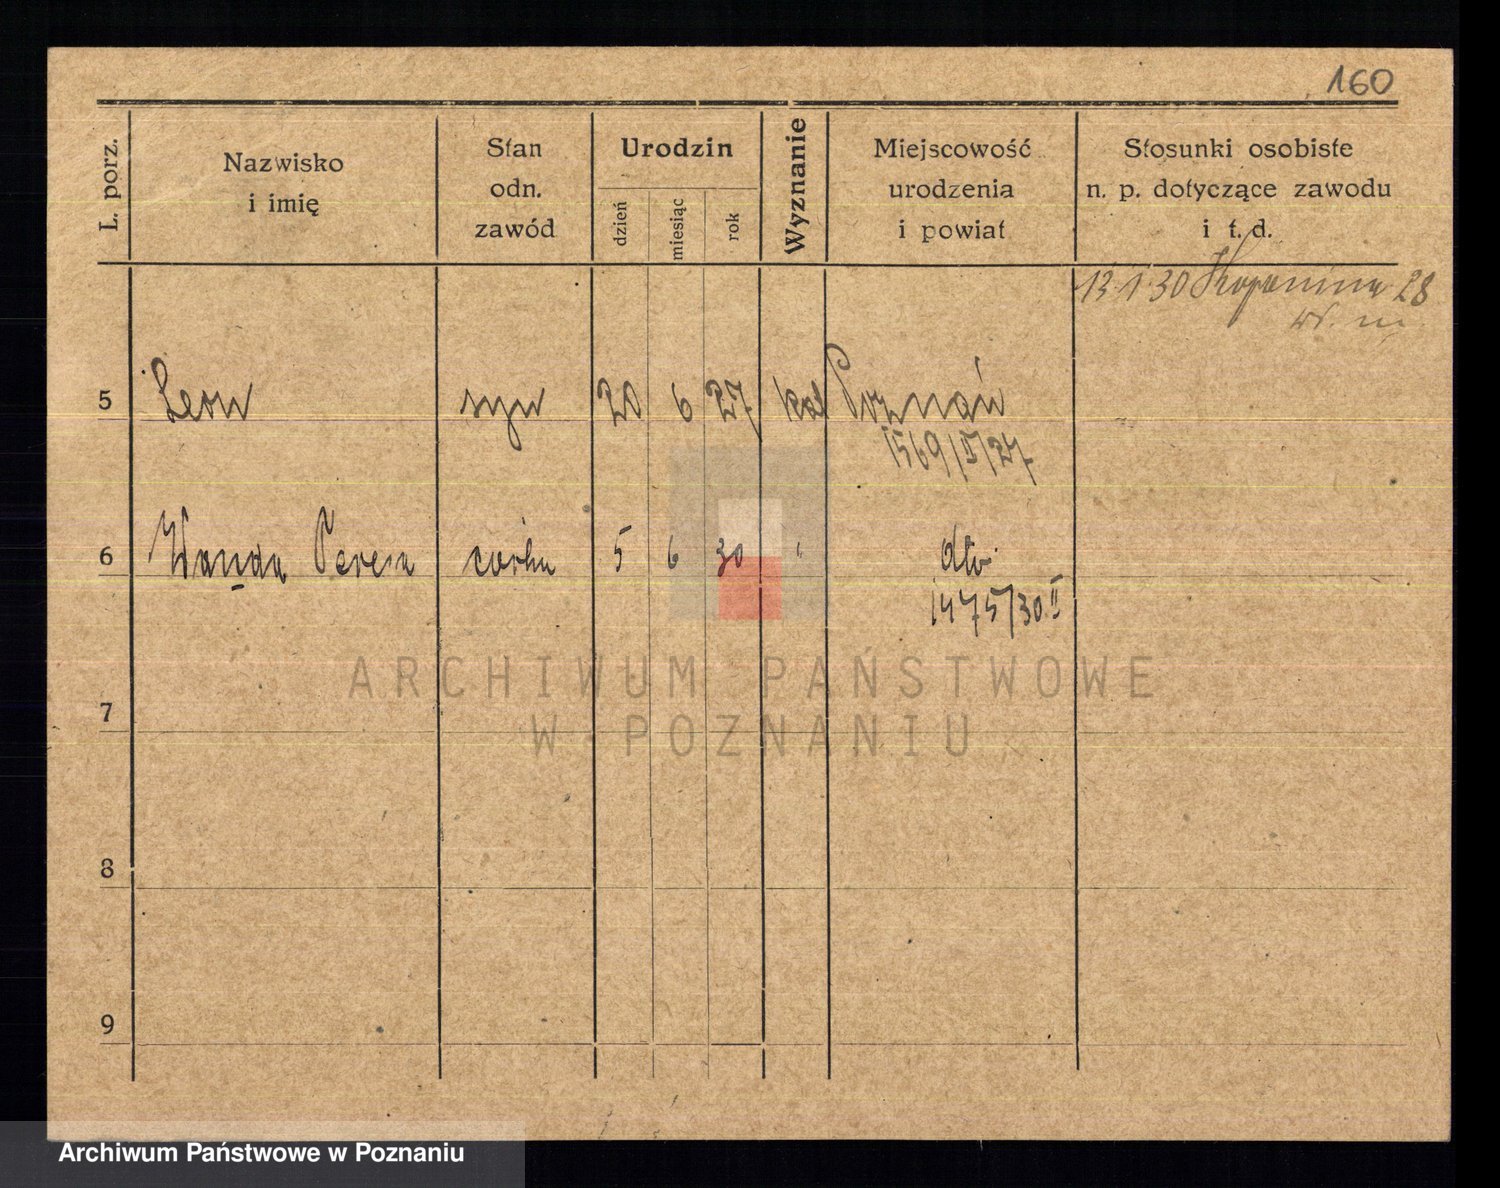 160
L. porz.
Nazwisko
i imię
Stan
odn.
zawód
Urodzin
dzień
miesiąc
rok
Wyznanie
Miejscowość
urodzenia
i powiat
Stosunki osobiste
n. p. dotyczące zawodu
i t. d.
13 1 30 Kopanina 28
5 Leon syn 20 6 27 kat Poznań
1569/5/27
6 Wanda Teresa córka 5 6 30 " dto
1475/30 II
ARCHIWUM PAŃSTWOWE
W POZNANIU
7
8
9
Archiwum Państwowe w Poznaniu